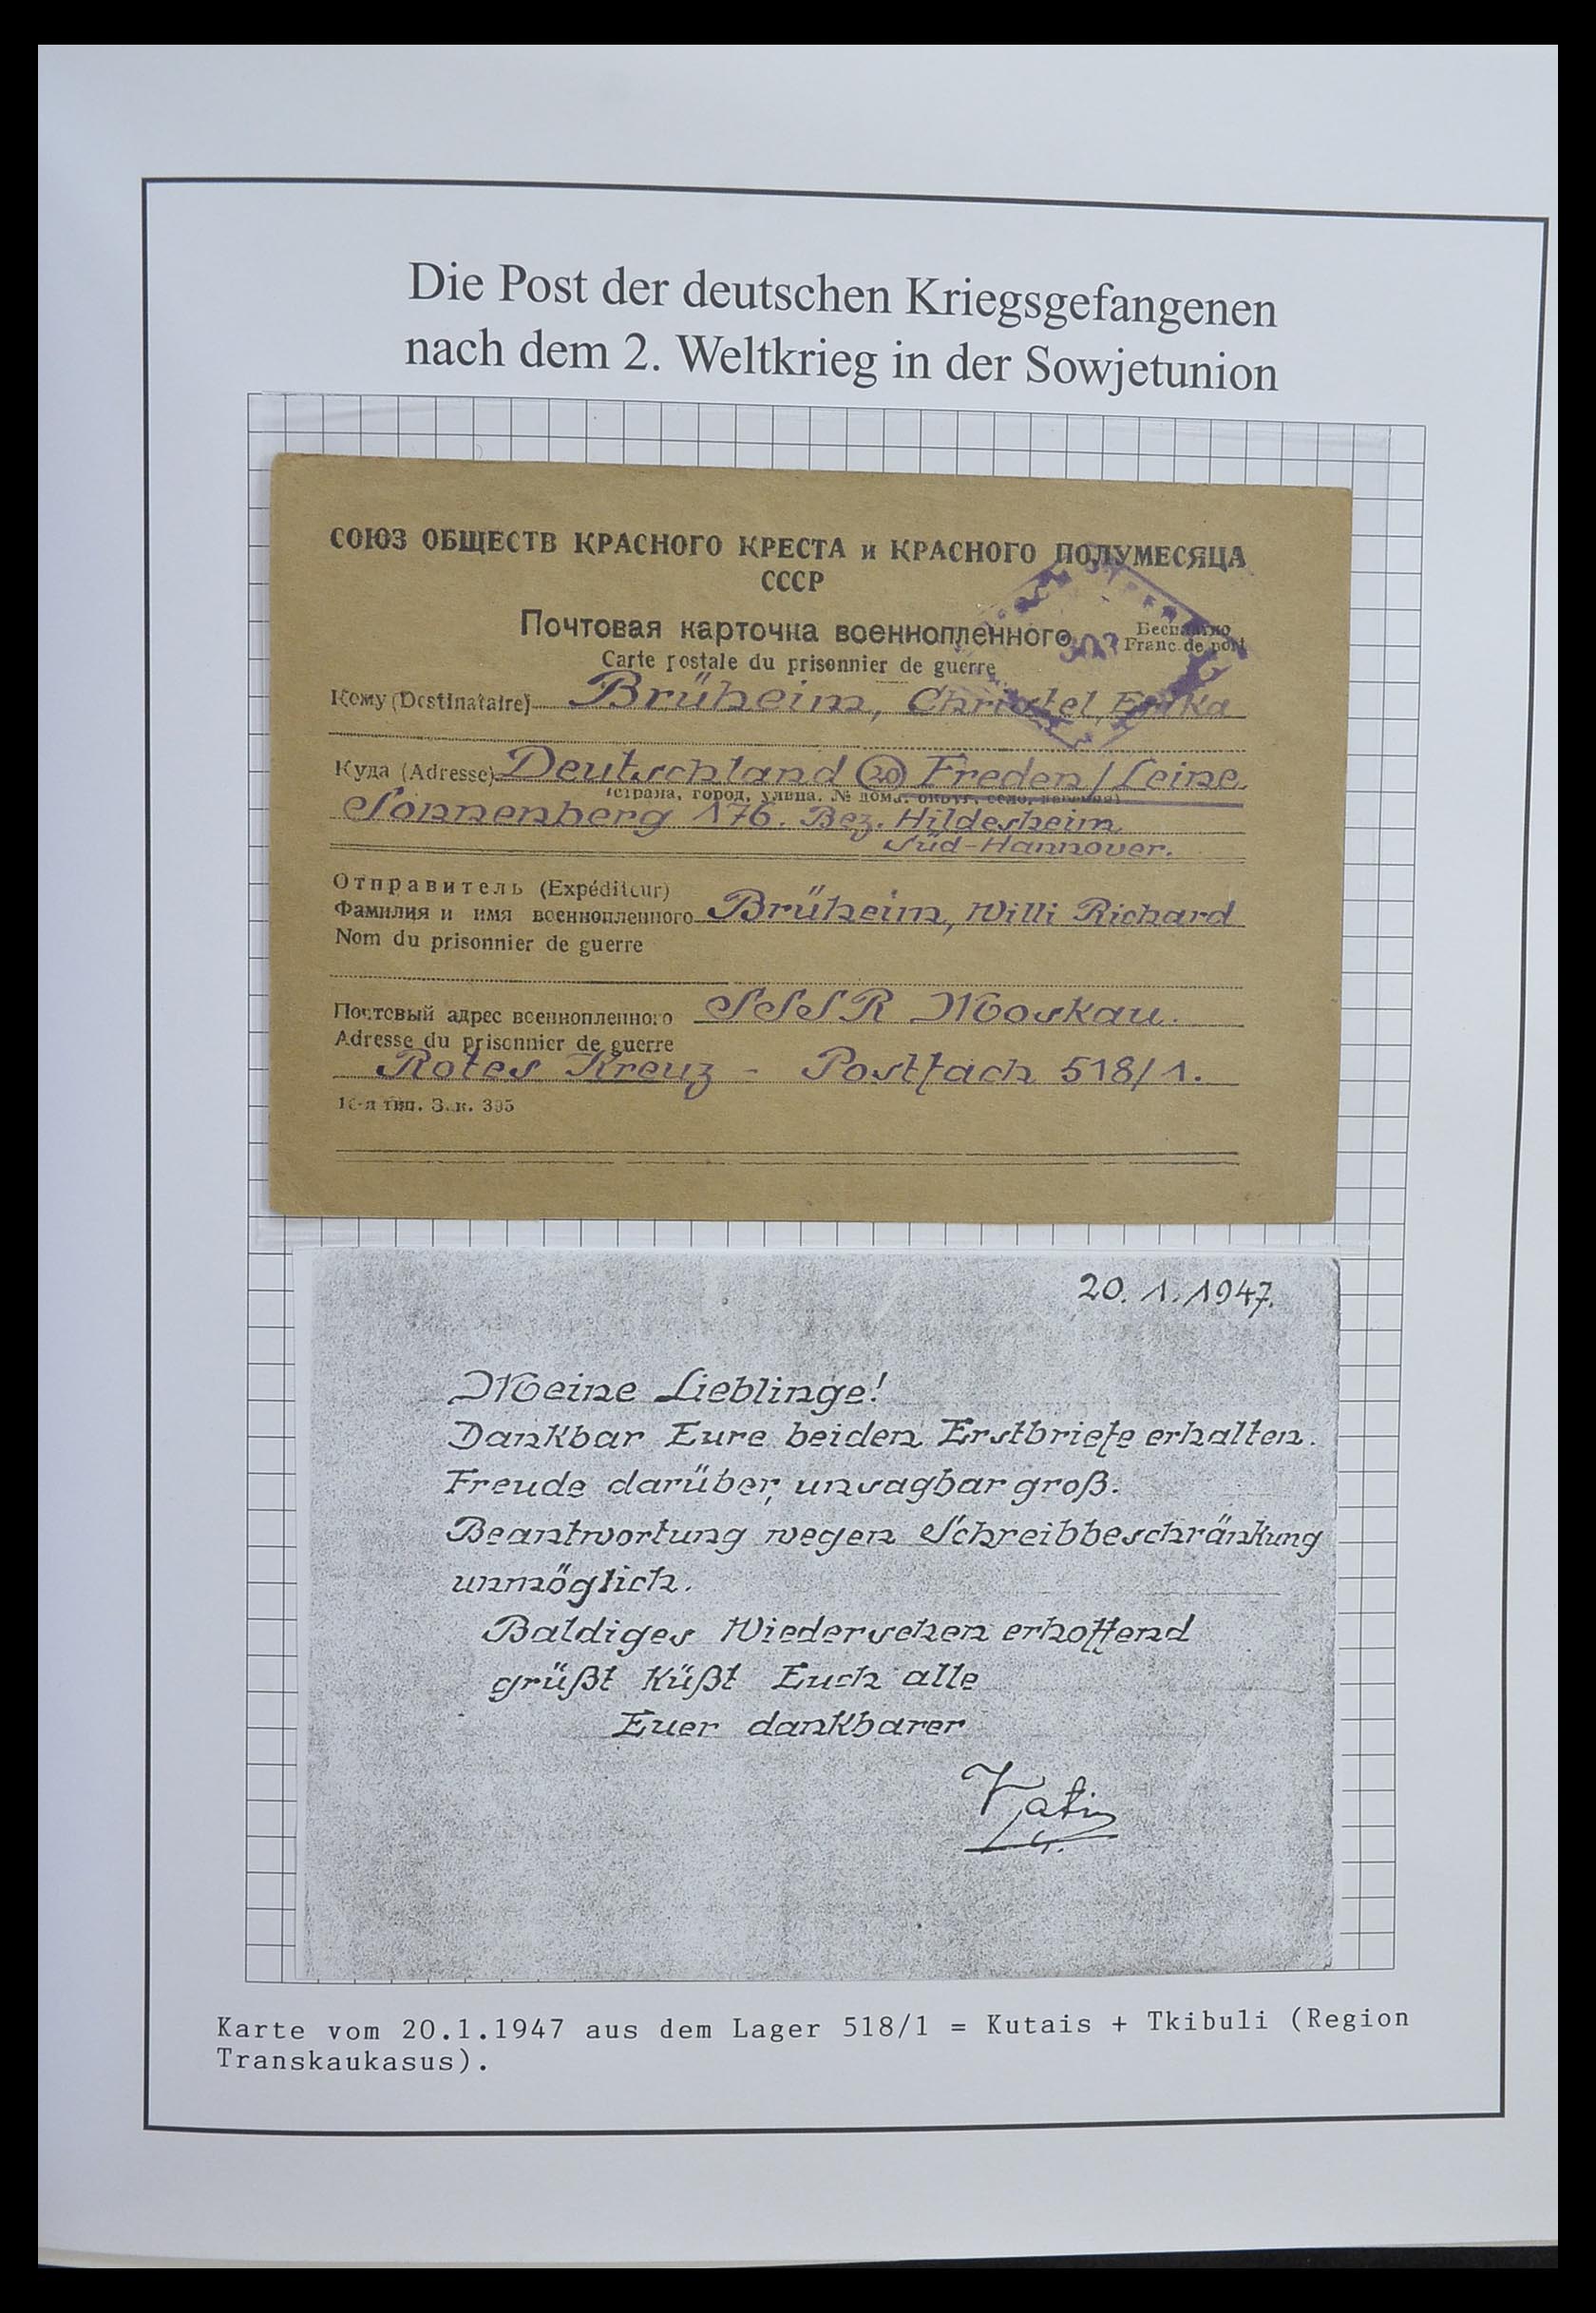 Die Post der deutschen Kriegsgefangenen
nach dem 2. Weltkrieg in der Sowjetunion
СОЮЗ ОБЩЕСТВ КРАСНОГО КРЕСТА и КРАСНОГО ПОЛУМЕСЯЦА
СССР
Почтовая карточка военнопленного
Бесплатно
Carte postale du prisonnier de guerre
Franc de port
Кому (Destinataire) Brüheim, Christel, Erika
Куда (Adresse) Deutschland (20) Freden/Leine.
(страна, город, улица, № дома, округ, село, деревня)
Sonnenberg 176. Bez. Hildesheim.
Süd-Hannover.
Отправитель (Expéditeur)
Фамилия и имя военнопленного Brüheim, Willi Richard
Nom du prisonnier de guerre
Почтовый адрес военнопленного SSSR Moskau.
Adresse du prisonnier de guerre
Rotes Kreuz - Postfach 518/1.
16-я тип. Зак. 395
20. 1. 1947.
Meine Lieblinge!
Dankbar Eure beiden Erstbriefe erhalten.
Freude darüber, unsagbar groß.
Beantwortung wegen Schreibbeschränkung
unmöglich.
Baldiges Wiedersehen erhoffend
grüßt küßt Euch alle
Euer dankbarer
Karte vom 20.1.1947 aus dem Lager 518/1 = Kutais + Tkibuli (Region
Transkaukasus).